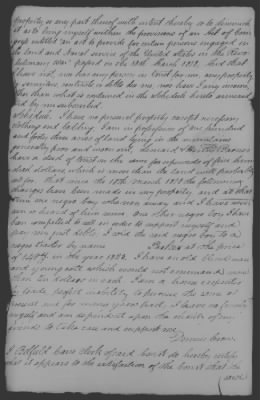 property or any part thereof with intent thereby so to diminish
it as to bring myself within the provisions of an Act of Con
gress entitled an act to provide for certain persons engaged in
the land and naval service of the United States in the Revo
lutionary war passed on the 18th March 1818. And that
I have not nor has any person in trust for me, any property
or securities contracts or debts due me, nor have I any income
other than what is contained in the schedule hereto annexed
and by me subscribed.
Schedule. I have no personal property except necessary
clothing and bedding. I am in possession of one hundred
and forty three acres of land lying in the mountains
have a deed of trust in the same for upwards of five hun
dred dollars which is more than the land will probably
sell for. That since the 18th March 1818 the following
changes have been made in my property, and at that
time one negro boy who ran away and I have never
seen or heard of him since. One other negro boy I have
been compelled to sell in order to support myself and
pay my just debts. I sold the said negro boy to a
negro trader by name Parker at the price
of in the year 1820. I have an old blind mare
and young colt which would not command more
than dollars in each. I am a house carpenter
by trade, my inability to pursue the same at
present and for many years past. I have no family
and am dependent upon the charity of my
friends to take care and support me.
I clerk of said court do hereby certify
that it appears to the satisfaction of the court that the
said